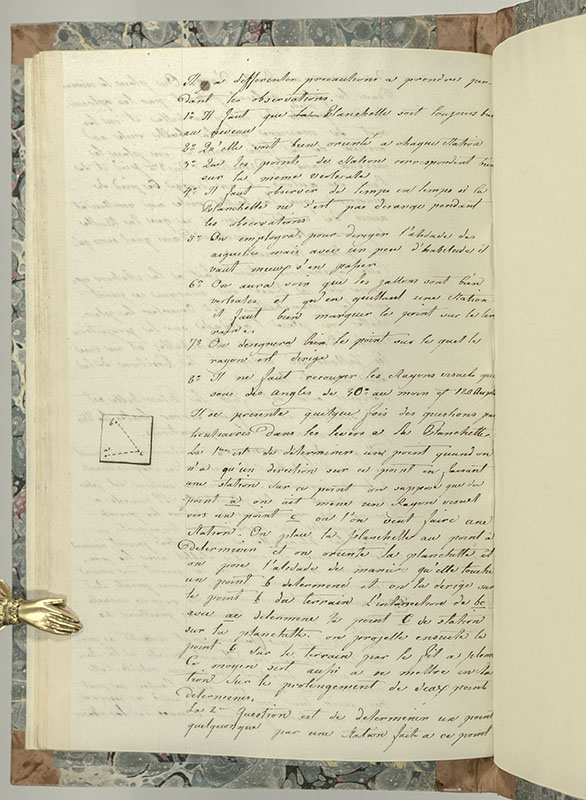 Il y a differentes précautions a prendre pen-
dant les observations.
1° Il faut que la Planchette soit toujours bien
au niveau
2° Qu'elle soit bien orienté a chaque station
3° Que les points de station correspondent bien
sur la meme verticale
4° Il faut observer de temps en temps si la
Planchette ne s'est pas derangé pendant
les observations
5° On employra pour diriger l'alidade des
aiguilles mais avec un peu d'habitude il
vaut mieux s'en passer
6° On aura soin que les jallons sont bien
verticales et qu'en quittant une station
il faut bien marquer le point sur le ter
7° On designera bien le point sur le quel le
rayon est dirigé
8° Il ne faut recouper les Rayons visuels que
sous des angles de 30° au moin et 120 au plus
Il se presente quelque fois des questions par
ticuliaires dans les levers a la Planchette.
La 1ere est de determiner un point quand on
n'a qu'un direction sur ce point en faisant
une station sur ce point on suppose que du
point a on ait mene un Rayon visuel
vers un point c ou l'on veut faire une
station. On place la planchette au point a
determiner et on oriente la planchette et
on pose l'alidade de manier qu'elle touche
un point b determiné et on la dirige sur
le point b du terrain L'intersection de bc
avec ac determine le point C de station
sur la planchette on projette ensuite le
point C sur le terrain par le fil a plom
Ce moyen sert aussi a se mettre en sta
tion sur le prolongement de deux points
determinés.
La 2me Question est de determiner un point
quelquonque par une station faite a ce point
b
a
c